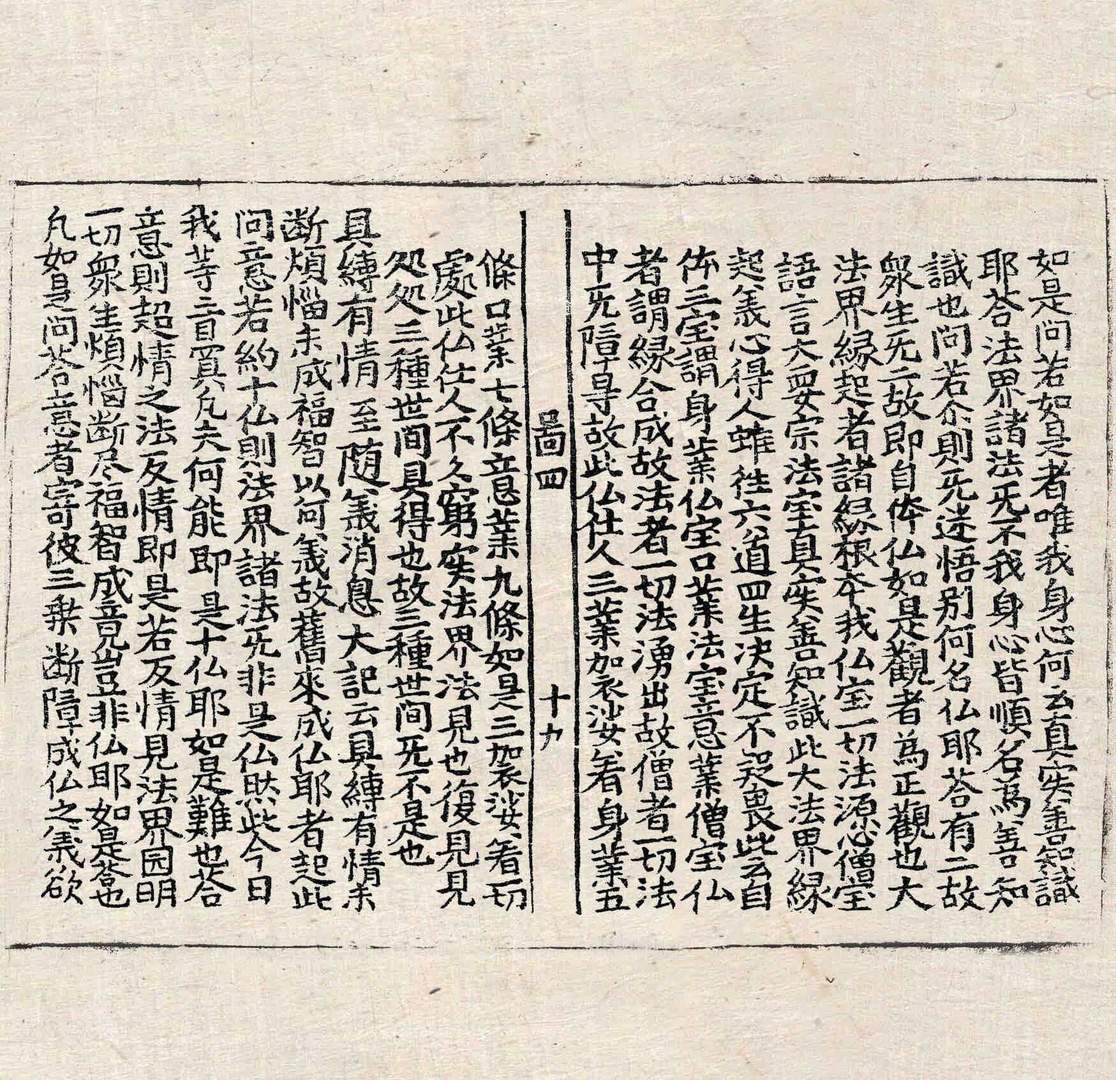 如是问若如是者唯我身心何云真实善知識
耶荅法界諸法旡不我身心皆順名為善知
識也问若尒則旡迷悟别何名仏耶荅有二故
衆生旡二故即自体仏如是觀者為正觀也大
法界緣起者諸緣根夲我仏宝一切法源心僧宝
語言大要宗法宝真实善知識此大法界緣
起義心得人雖徃六道四生决定不疑畏此云自
体三宝謂身業仏宝口業法宝意業僧宝仏
者謂緣合成故法者一切法湧出故僧者一切法
中旡障导故此仏仕人三業加衣沙女着身業五
啚四
十九
條口業七條意業九條如是三袈裟着一切
處此仏仕人不久窮实法界法見也復見見
处处三種世间具得也故三種世间旡不是也
具縛有情至随義消息大記云具縛有情未
断煩惱未成福智以何義故舊來成仏耶者起此
问意若約十仏則法界諸法旡非是仏然此今日
我等盲冥凡夫何能即是十仏耶如是難也荅
意則超情之法反情即是若反情見法界园明
一切衆生煩惱断尽福智成竟豈非仏耶如是荅也
凡如是问荅意者寄彼三乗断障成仏之義欲